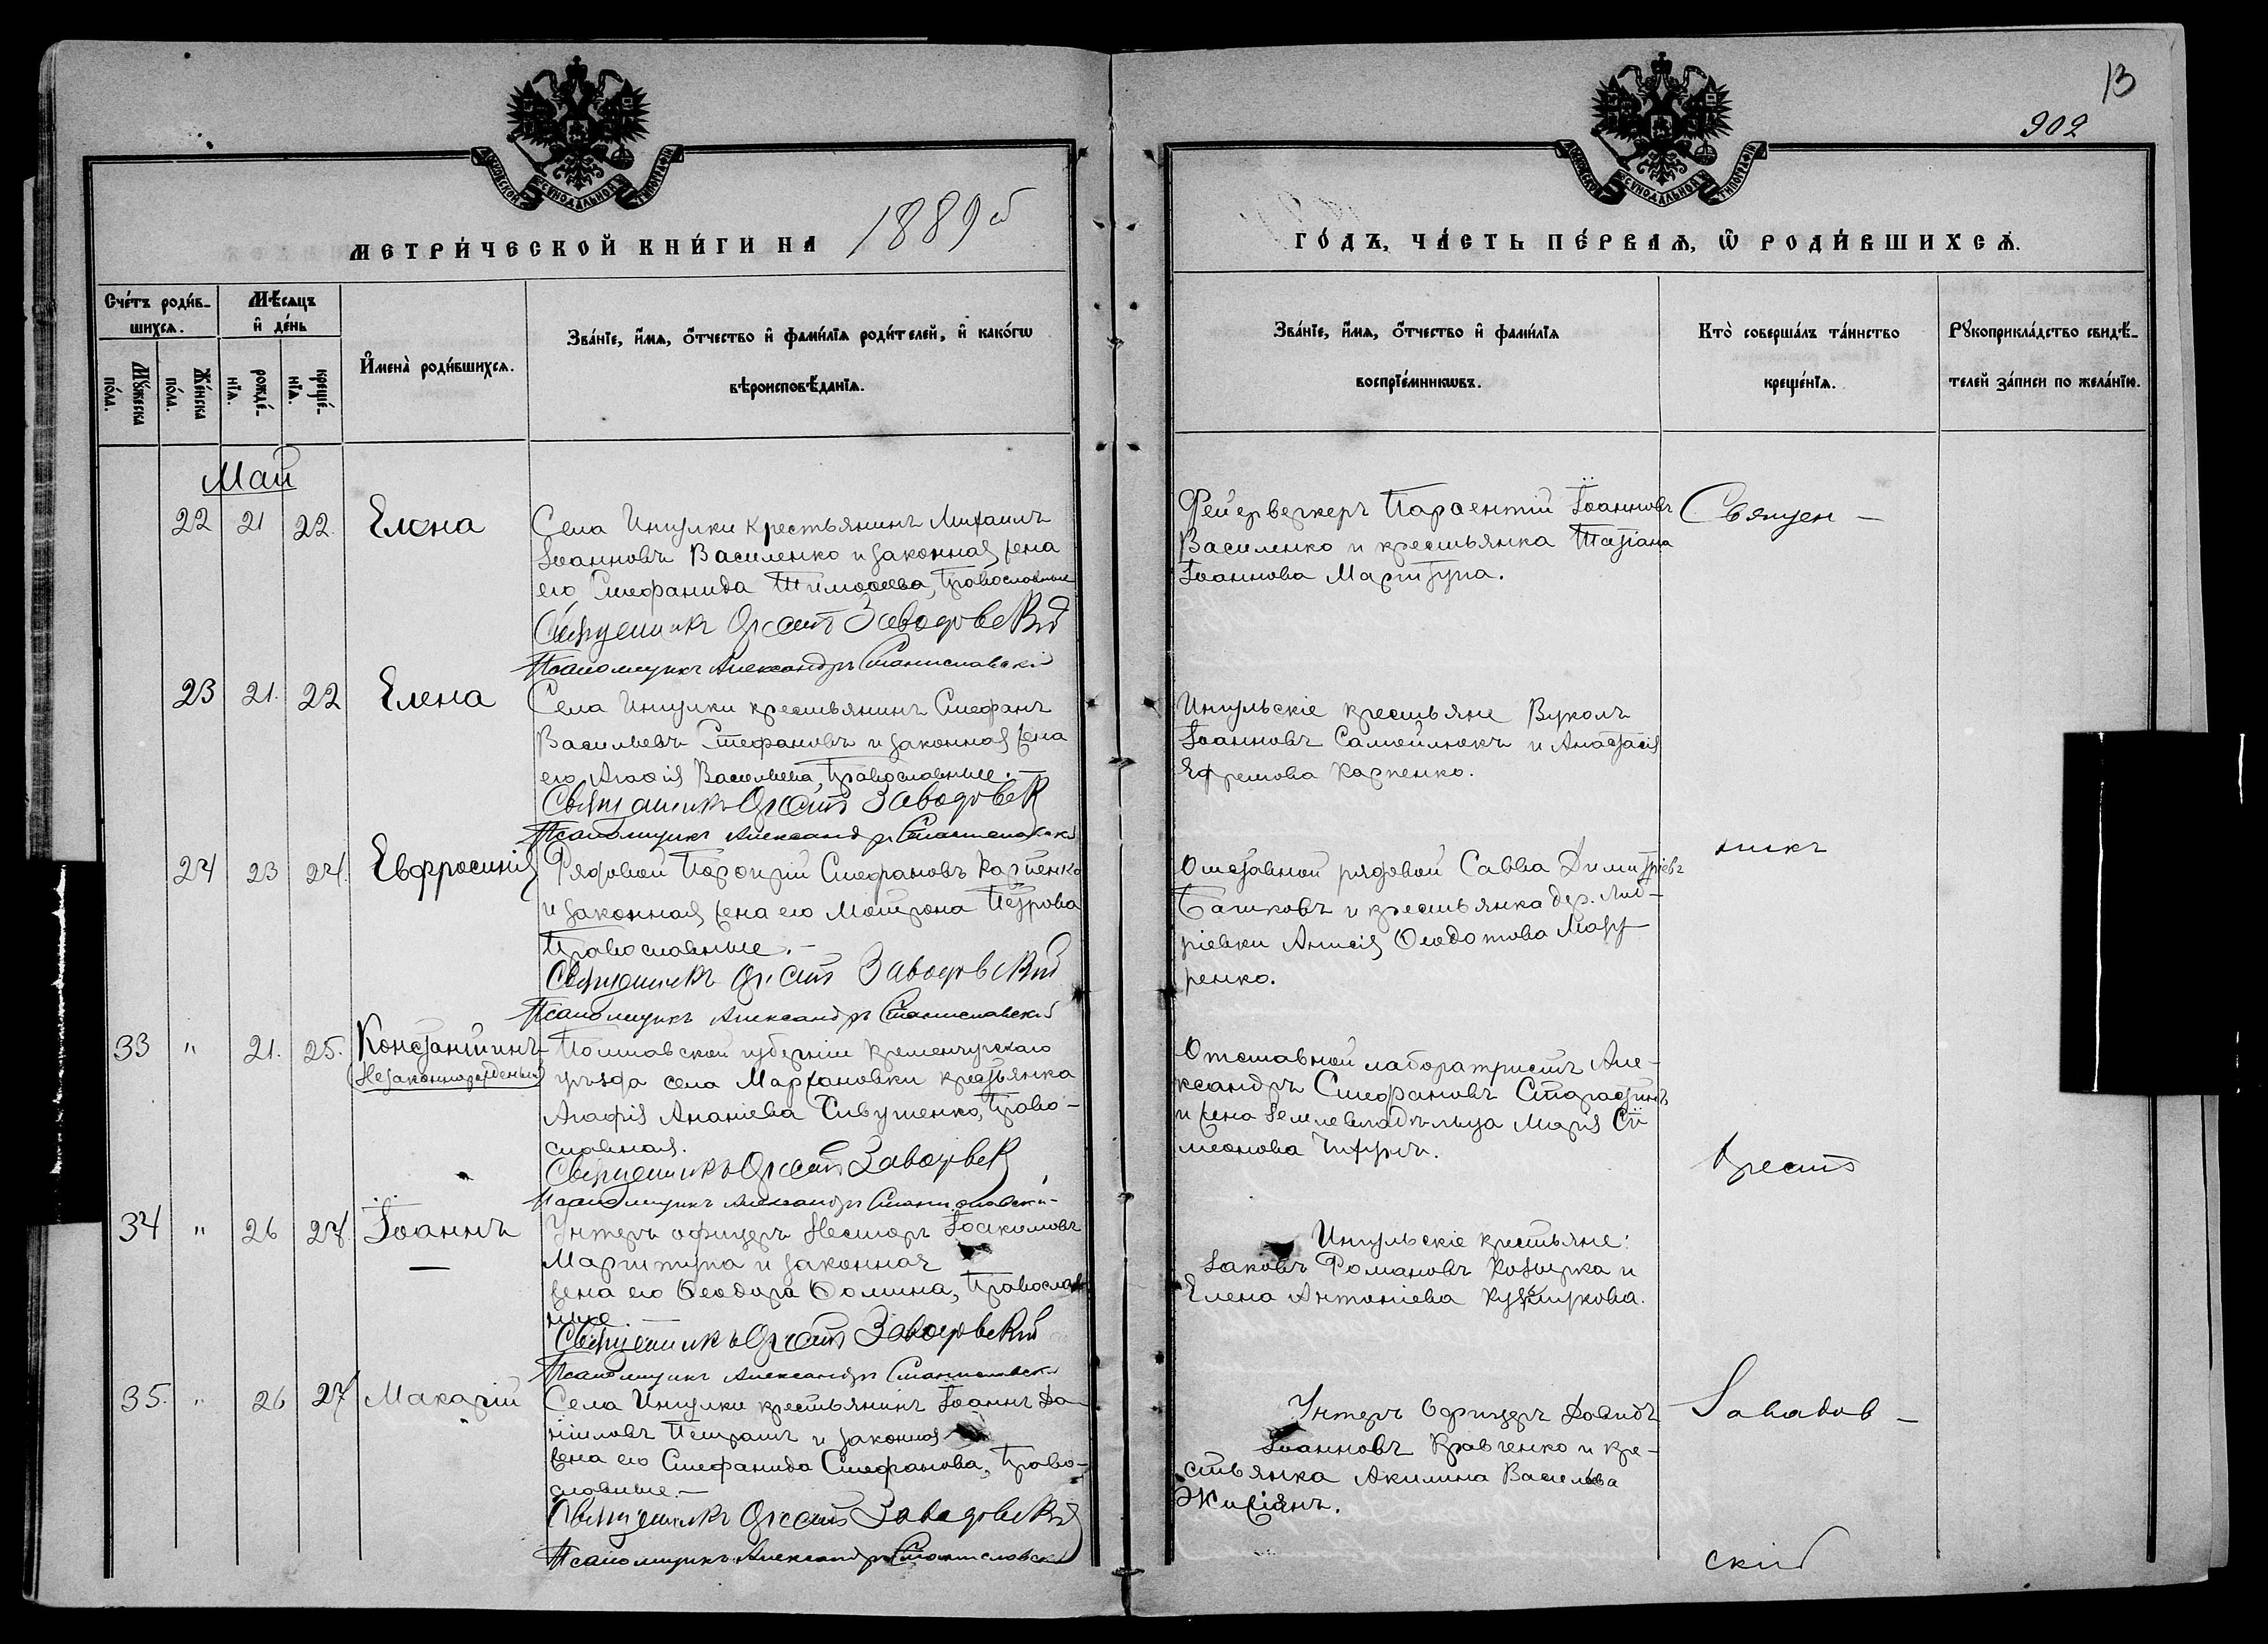 13
902
МОСКОВСКОЙ СѴНОДАЛЬНОЙ ТИПОГРАФІИ
МОСКОВСКОЙ СѴНОДАЛЬНОЙ ТИПОГРАФІИ
МЕТРИ́ЧЕСКОЙ КНИ́ГИ НА 1889й
ГО́ДЪ, ЧА́СТЬ ПЕ́РВАѦ, Ѿ РОДИ́ВШИХСѦ.
Сче́тъ роди́в-
шихсѧ.
Мѣ́сѧцъ
и҆ де́нь
Мꙋ́жеска
по́ла.
Же́нска
по́ла.
рожде́-
нїѧ.
креще́-
нїѧ.
И҆мена̀ роди́вшихсѧ.
Зва́нїе, и҆́мѧ, ѻ҆́тчество и҆ фами́лїѧ роди́телей, и҆ како́гѡ
вѣроисповѣ́данїѧ.
Зва́нїе, и҆́мѧ, ѻ҆́тчество и҆ фами́лїѧ
воспрїе́мникѡвъ.
Кто̀ соверша́лъ та́инство
креще́нїѧ.
Рꙋкоприкла́дство свидѣ́-
телей за́писи по жела́нїю.
Май
22 21 22 Елена
Села Ингулки крестьянинъ Михаилъ
Іоанновъ Василенко и законная жена
его Стефанида Тимоѳеева, Православные
Священникъ Орестъ Заводовскій
Псаломщикъ Александръ Станиславскій
Фейерверкеръ Парѳентій Іоанновъ
Василенко и крестьянка Татіана
Іоаннова Мартпуга.
Священ-
23 21. 22 Елена
Села Ингулки крестьянинъ Стефанъ
Васильевъ Стефановъ и законная жена
его Агаѳія Васильева, Православные.-
Священникъ Орестъ Заводовск
Псаломщикъ Александръ Станиславскій
Ингульскіе крестьяне Вуколъ
Іоанновъ Самойлюкъ и Анастасія
Ефремова Карпенко.
24 23 24. Евфросинія
Рядовой Порфирій Стефановъ Карпенко
и законная жена его Мотрона Петрова
Православные.-
Священникъ Орестъ Заводовскій
Псаломщикъ Александръ Станиславскій
Отставной рядовой Савва Димитріевъ
Башковъ и крестьянка дер.
Анисія Ѳеодотова
ренко.
никъ
33 " 21. 25. Константинъ-
(Незаконнорожденный)
Полтавской губерніи Кременчугскаго
уѣзда села Маржановки крестьянка
Агафія Ананіева Сивушенко, Право-
славная.
Священникъ Орестъ Заводовск
Псаломщикъ Александръ Станиславскій-
Отставной лаборатристъ Але-
ксандръ Стефановъ
и жена землевладѣльца Марія Си
меонова
Орестъ
34 " 26 27 Іоаннъ
Унтеръ офицеръ Несторъ Іоакимовъ
и законная
жена его Ѳеодора Ѳомина, Православ
ные
Священникъ Орестъ Заводовскій
Псаломщикъ Александръ Станиславскій
Ингульскіе крестьяне:
Іаковъ Романовъ Козырка и
Елена Антоніева
35. " 26 27 Макарій
Села Ингулки крестьянинъ Іоаннъ Да-
ніиловъ и законная
жена его Стефанида Стефанова, Право-
славные.-
Священникъ Орестъ Заводовскій
Псаломщикъ Александръ Станиславскій
Унтеръ Офицеръ Давидъ
Іоанновъ Кравченко и кре-
стьянка Акилина Васильева
Заводов-
скій